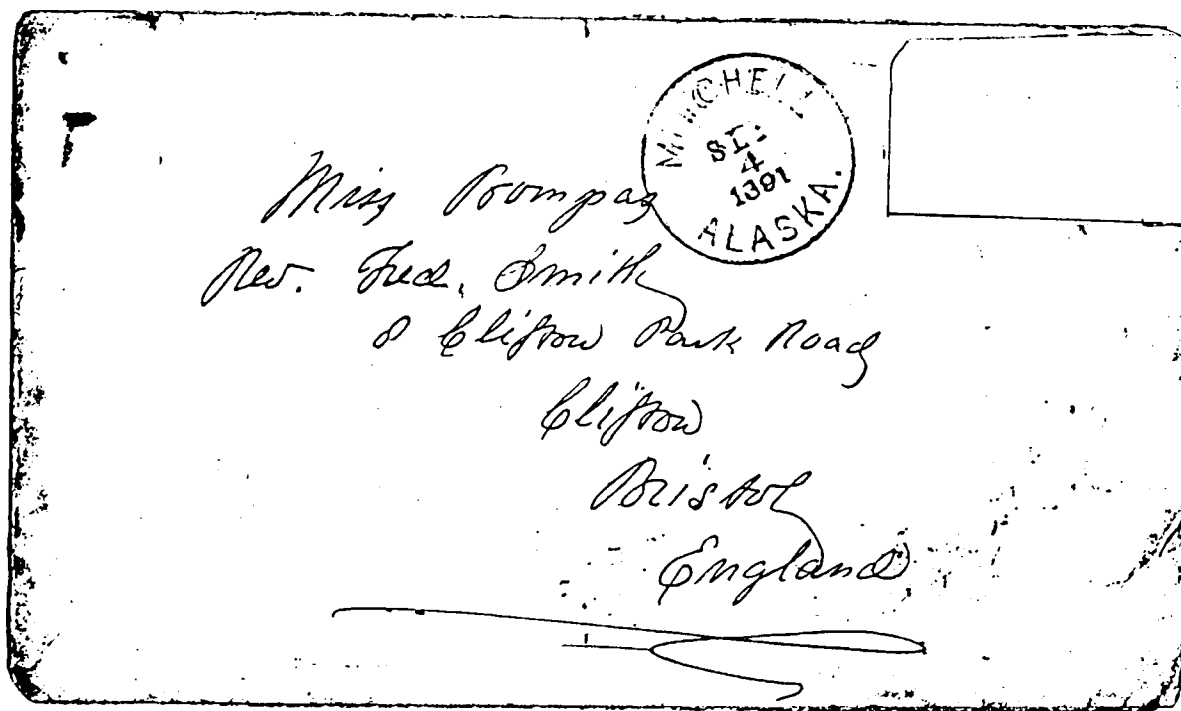 MITCHELL
SEP
4
1891
ALASKA.
Miss Bompas
Rev. Fred. Smith
8 Clifton Park Road
Clifton
Bristol
England